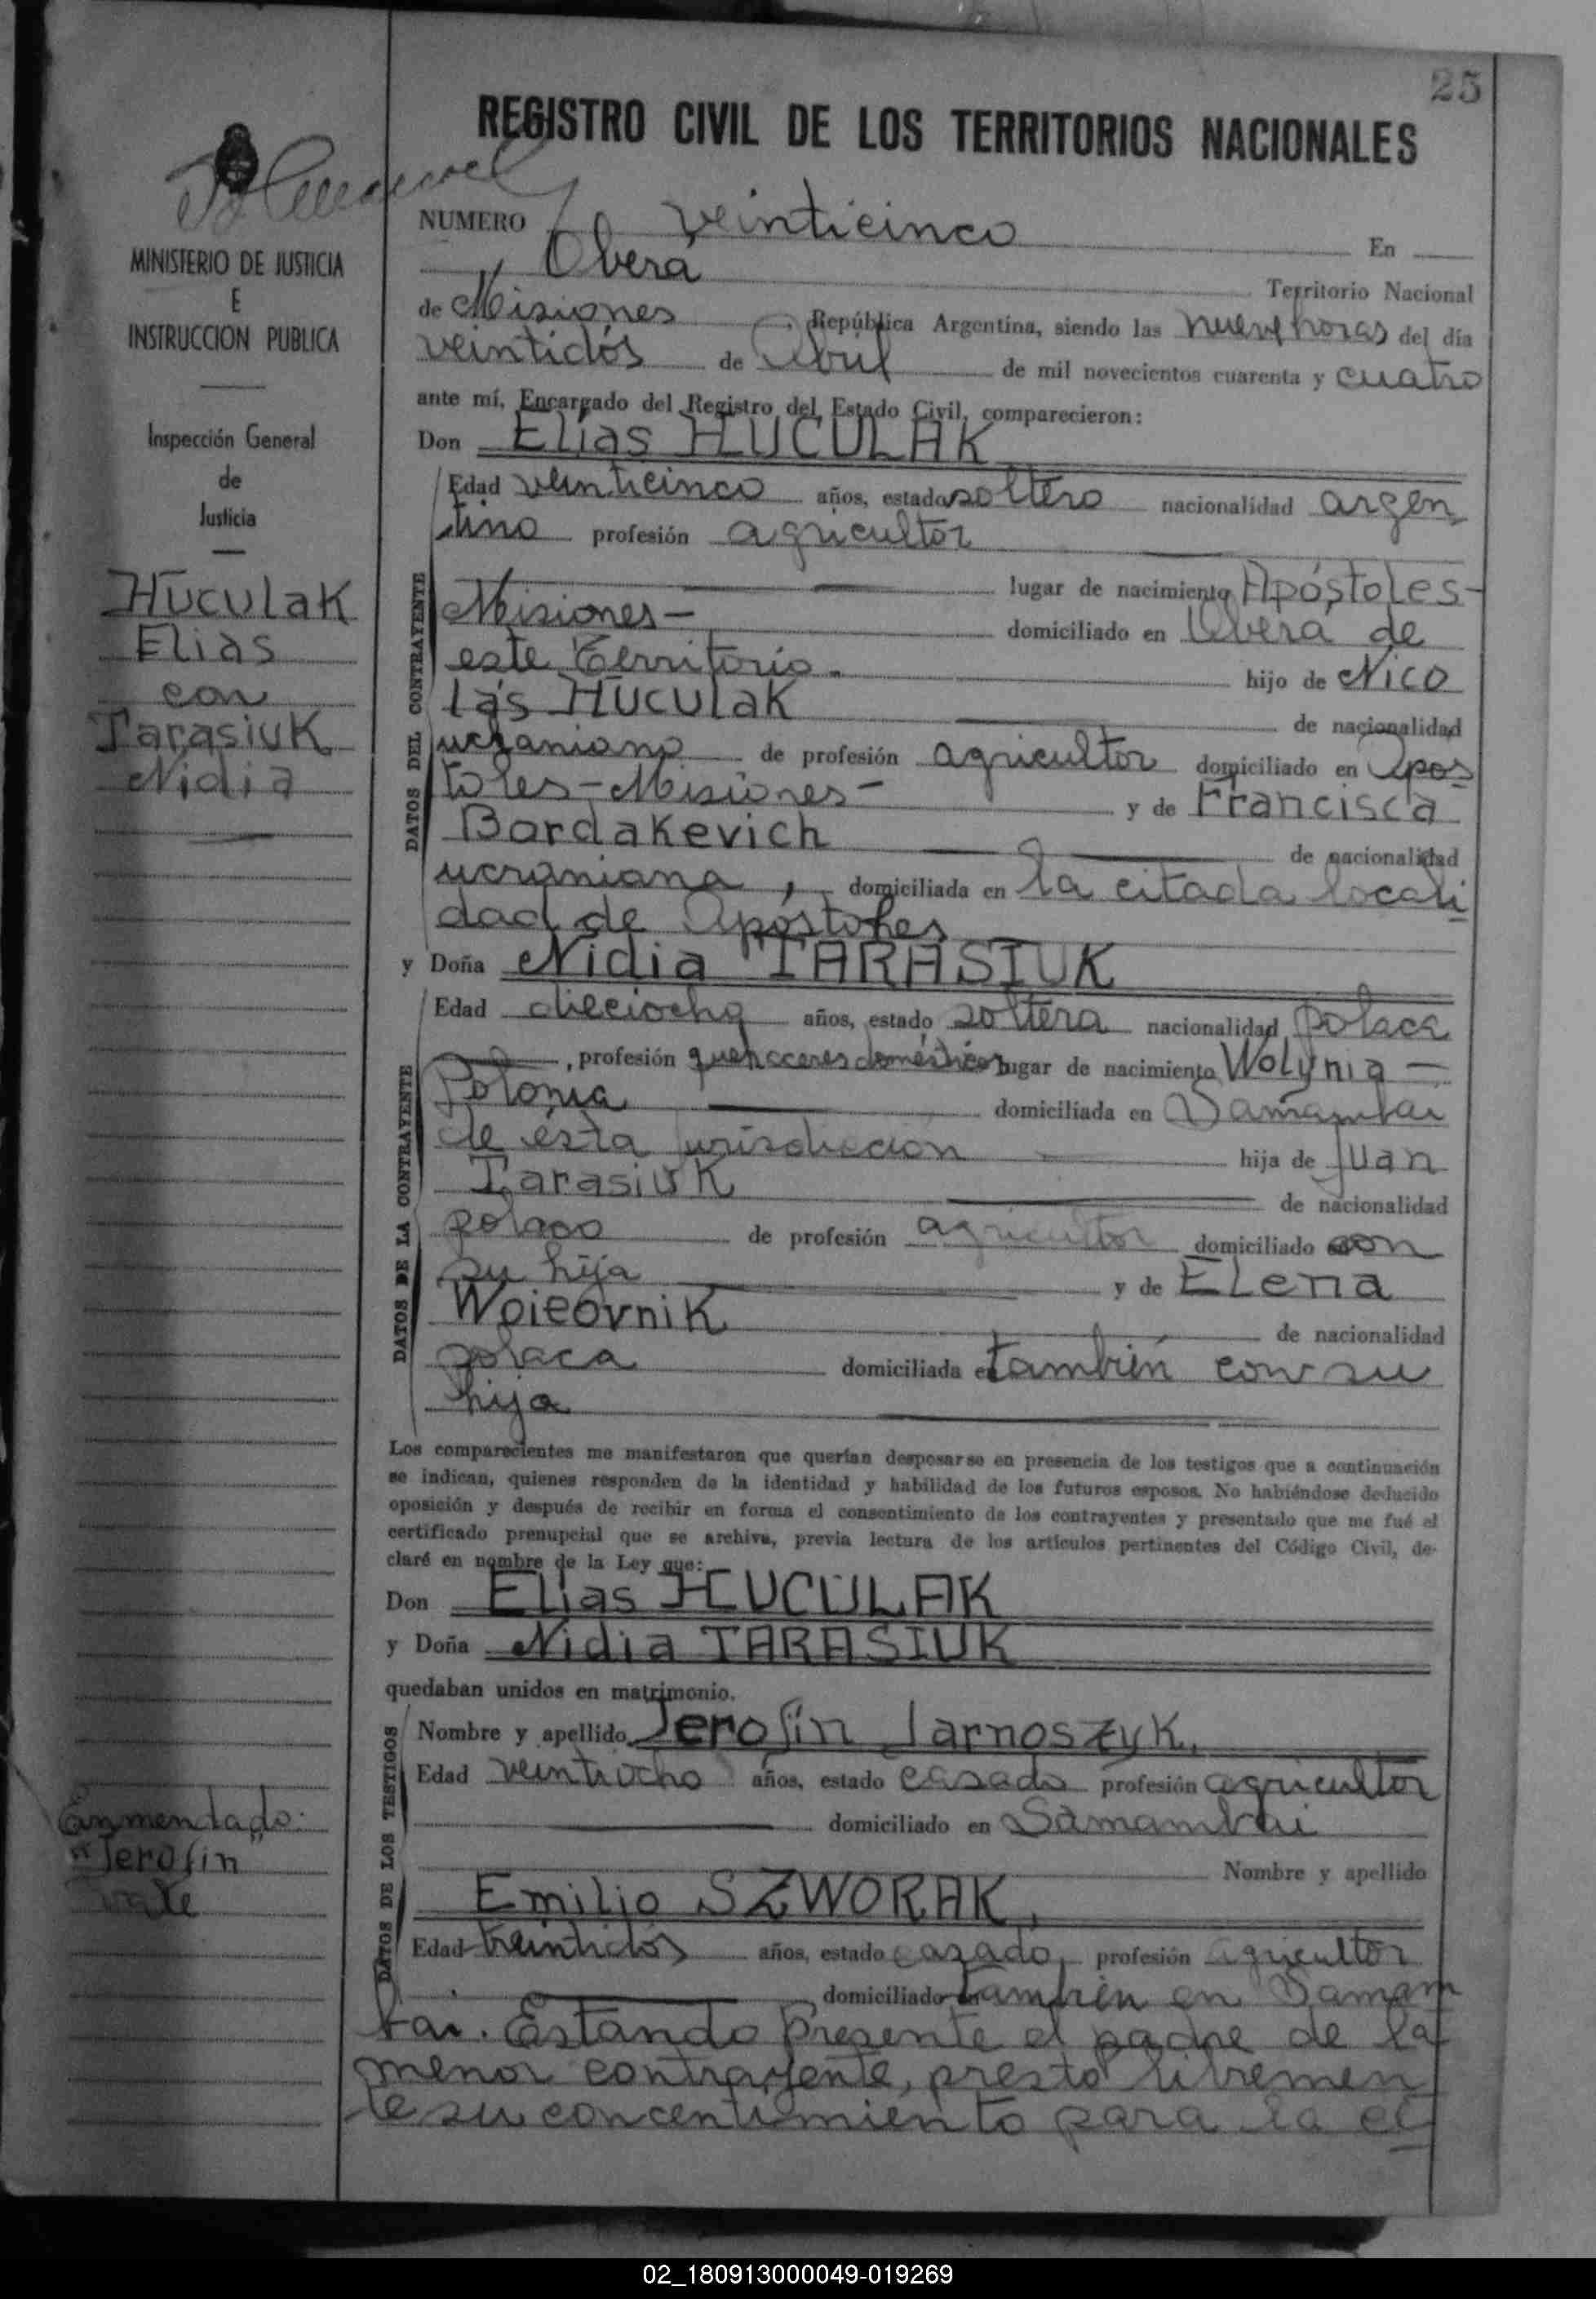 25
REGISTRO CIVIL DE LOS TERRITORIOS NACIONALES
MINISTERIO DE JUSTICIA
E
INSTRUCCION PUBLICA
Inspección General
de
Justicia
Huculak
Elias
con
Tarasiuk
Nidia
Enmendado:
"Jerofin"
vale
NUMERO veinticinco En
Oberá Territorio Nacional
de Misiones, República Argentina, siendo las nueve horas del día
veintidós de Abril de mil novecientos cuarenta y cuatro
ante mí, Encargado del Registro del Estado Civil, comparecieron:
Don Elías HUCULAK
DATOS DEL CONTRAYENTE
Edad veinticinco años, estado soltero nacionalidad argen
tino profesión agricultor
lugar de nacimiento Apóstoles-
Misiones- domiciliado en Oberá de
este Territorio. hijo de Nico
lás Huculak de nacionalidad
ucraniano de profesión agricultor domiciliado en Apos
toles-Misiones- y de Francisca
Bordakevich de nacionalidad
ucraniana, domiciliada en la citada locali
dad de Apóstoles
y Doña Nidia TARASIUK
DATOS DE LA CONTRAYENTE
Edad dieciocho años, estado soltera nacionalidad polaca
, profesión quehaceres domésticos lugar de nacimiento Wolynia-
Polonia domiciliada en Samambai
de esta jurisdiccion hija de Juan
Tarasiuk de nacionalidad
polaco de profesión agricultor domiciliado con
su hija y de Elena
Woieovnik de nacionalidad
polaca domiciliada en también con su
hija
Los comparecientes me manifestaron que querían desposarse en presencia de los testigos que a continuación
se indican, quienes responden de la identidad y habilidad de los futuros esposos. No habiéndose deducido
oposición y después de recibir en forma el consentimiento de los contrayentes y presentado que me fué el
certificado prenupcial que se archiva, previa lectura de los artículos pertinentes del Código Civil, de-
claré en nombre de la Ley que:
Don Elias HUCULAK
y Doña Nidia TARASIUK
quedaban unidos en matrimonio.
DATOS DE LOS TESTIGOS
Nombre y apellido Jerofin Jarnoszyk,
Edad veintiocho años, estado casado profesión agricultor
domiciliado en Samambai
Nombre y apellido
Emilio SZWORAK,
Edad treintidós años, estado casado, profesión agricultor
domiciliado en también en Samam
bai. Estando presente el padre de la
menor contrayente, prestó libremen
te su concentimiento para la ce
02_180913000049-019269